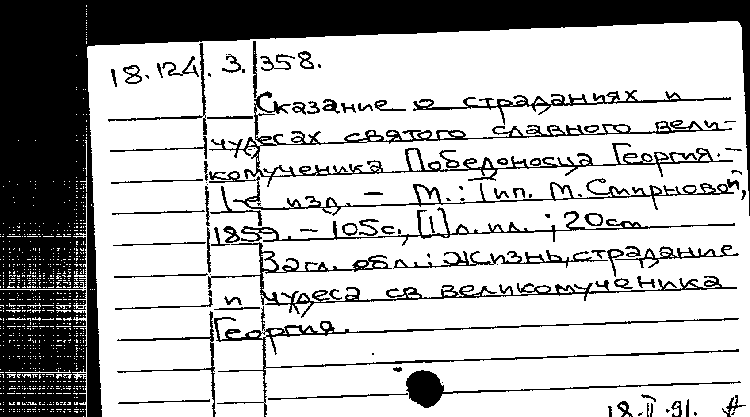 18.124.3.358.
Сказание о страданиях и
чудесах святого славного вели-
комученика Победоносца Георгия. -
1-е изд. - М.: Тип. М. Смирновой,
1859. - 105с., [1] л. ил. ; 20см
Загл. обл.: Жизнь, страдание
и чудеса св великомученика
Георгия.
18.II.91.